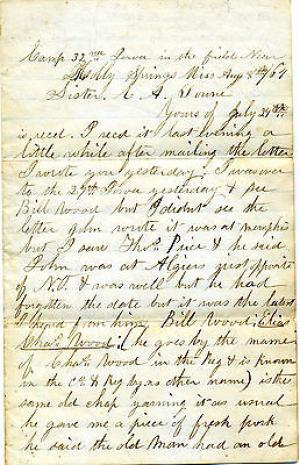 Camp 32nd Iowa in the field Near
Holly Springs Miss Aug 8th/64
Sister. E. A. Towne
Yours of July 24th
is recd. I recd it last evening a
little while after mailing the letter
I wrote you yesterday. I was over
to the 27th Iowa yesterday & see
Bill Wood but I didnt see the
letter John wrote it was at memphis
but I saw Thos. Price & he said
John was at Algiers just opposite
of N.O. & was well but he had
forgotten the date but it was the latest
I heard from him, Bill Wood, Elias
Chas. Wood, (he goes by the name
of Chas. Wood in the Reg & is known
in the Co & Reg by no other name) is the
same old chap yarning it as usual
he gave me a piece of fresh pork
he said the old man had an old